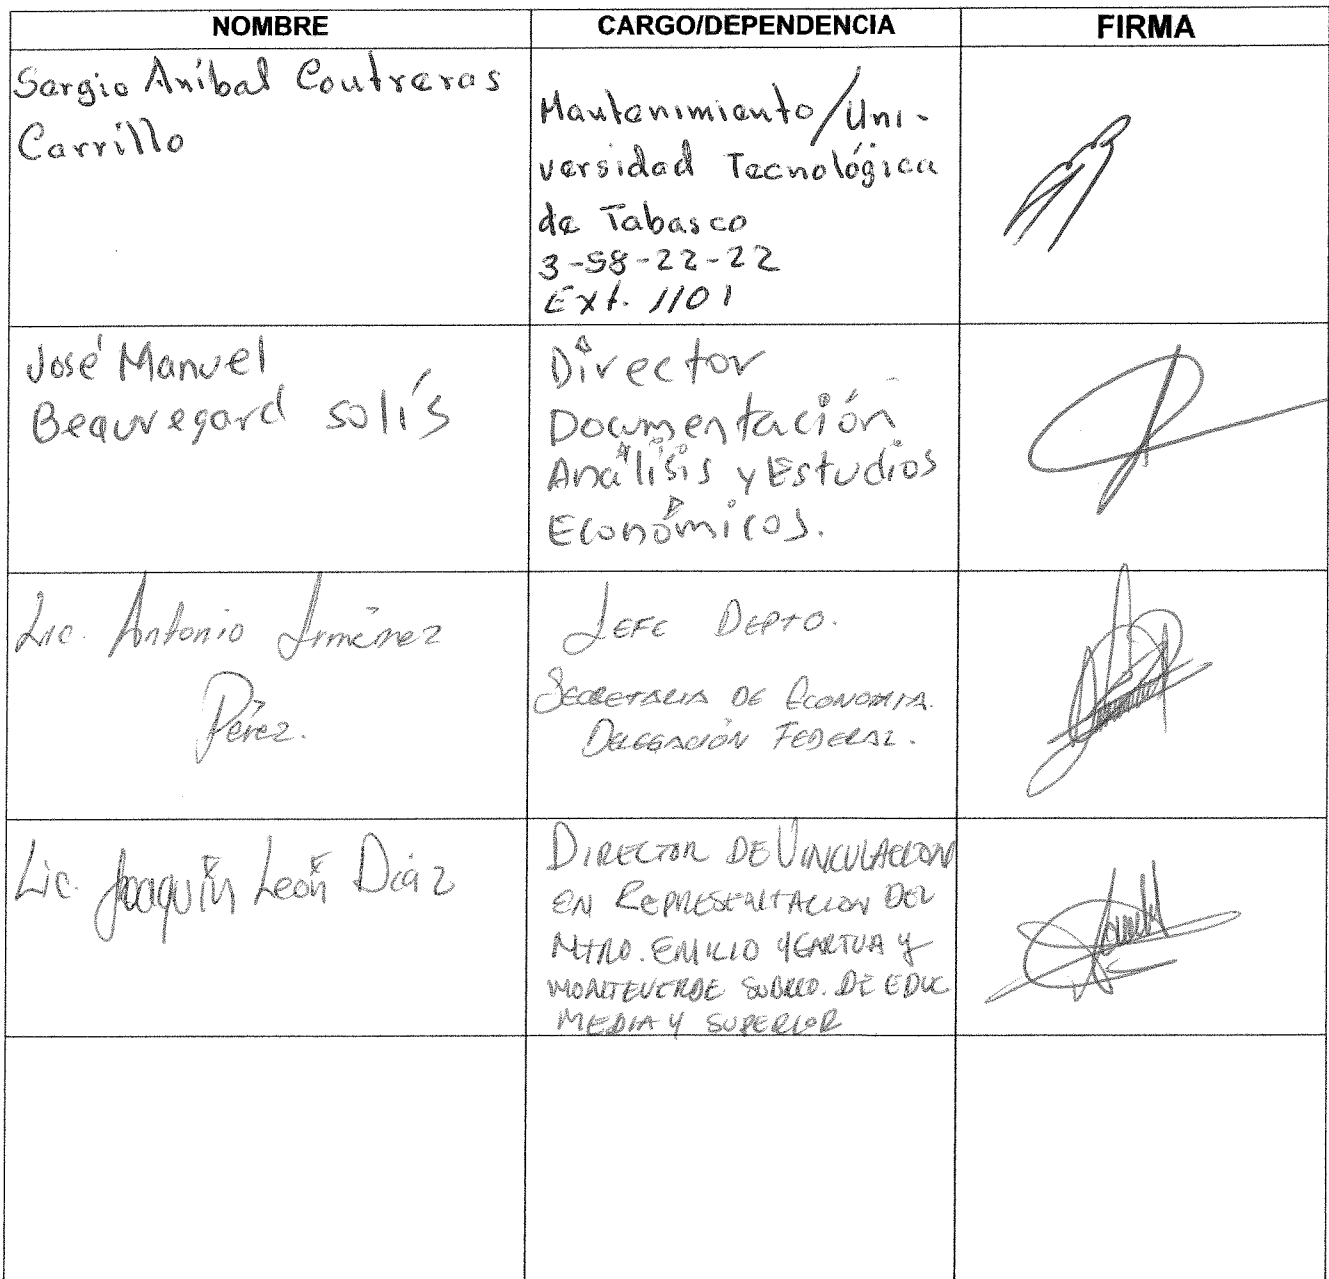 NOMBRE CARGO/DEPENDENCIA FIRMA
Sergio Aníbal Contreras
Carrillo
Mantenimiento/Uni-
versidad Tecnológica
de Tabasco
3-58-22-22
Ext. 1101
José Manuel
Beauregard solís
Director
Documentación
Análisis y Estudios
Económicos.
Lic. Antonio Jiménez
Pérez.
JEFE DEPTO.
SECRETARIA DE ECONOMIA.
DELEGACIÓN FEDERAL.
Lic. Joaquín León Díaz
DIRECTOR DE VINCULACION
EN REPRESENTACION DEL
MTRO. EMILIO YCARTUA Y
MONTEVERDE SUBSRIO. DE EDUC
MEDIA Y SUPERIOR